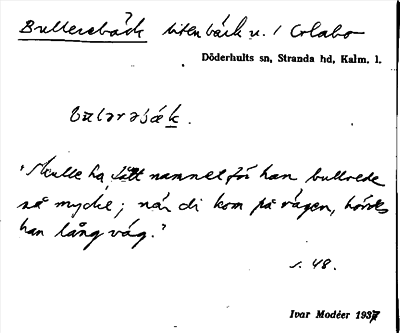 Bullerebäck liten bäck u. / Colabo
Döderhults sn, Stranda hd, Kalm. l.
"Skulle ha fått namnet för han bullrede
så mycke; när di kom på vägen, hördes
han lång väg."
s. 48.
Ivar Modéer 1937